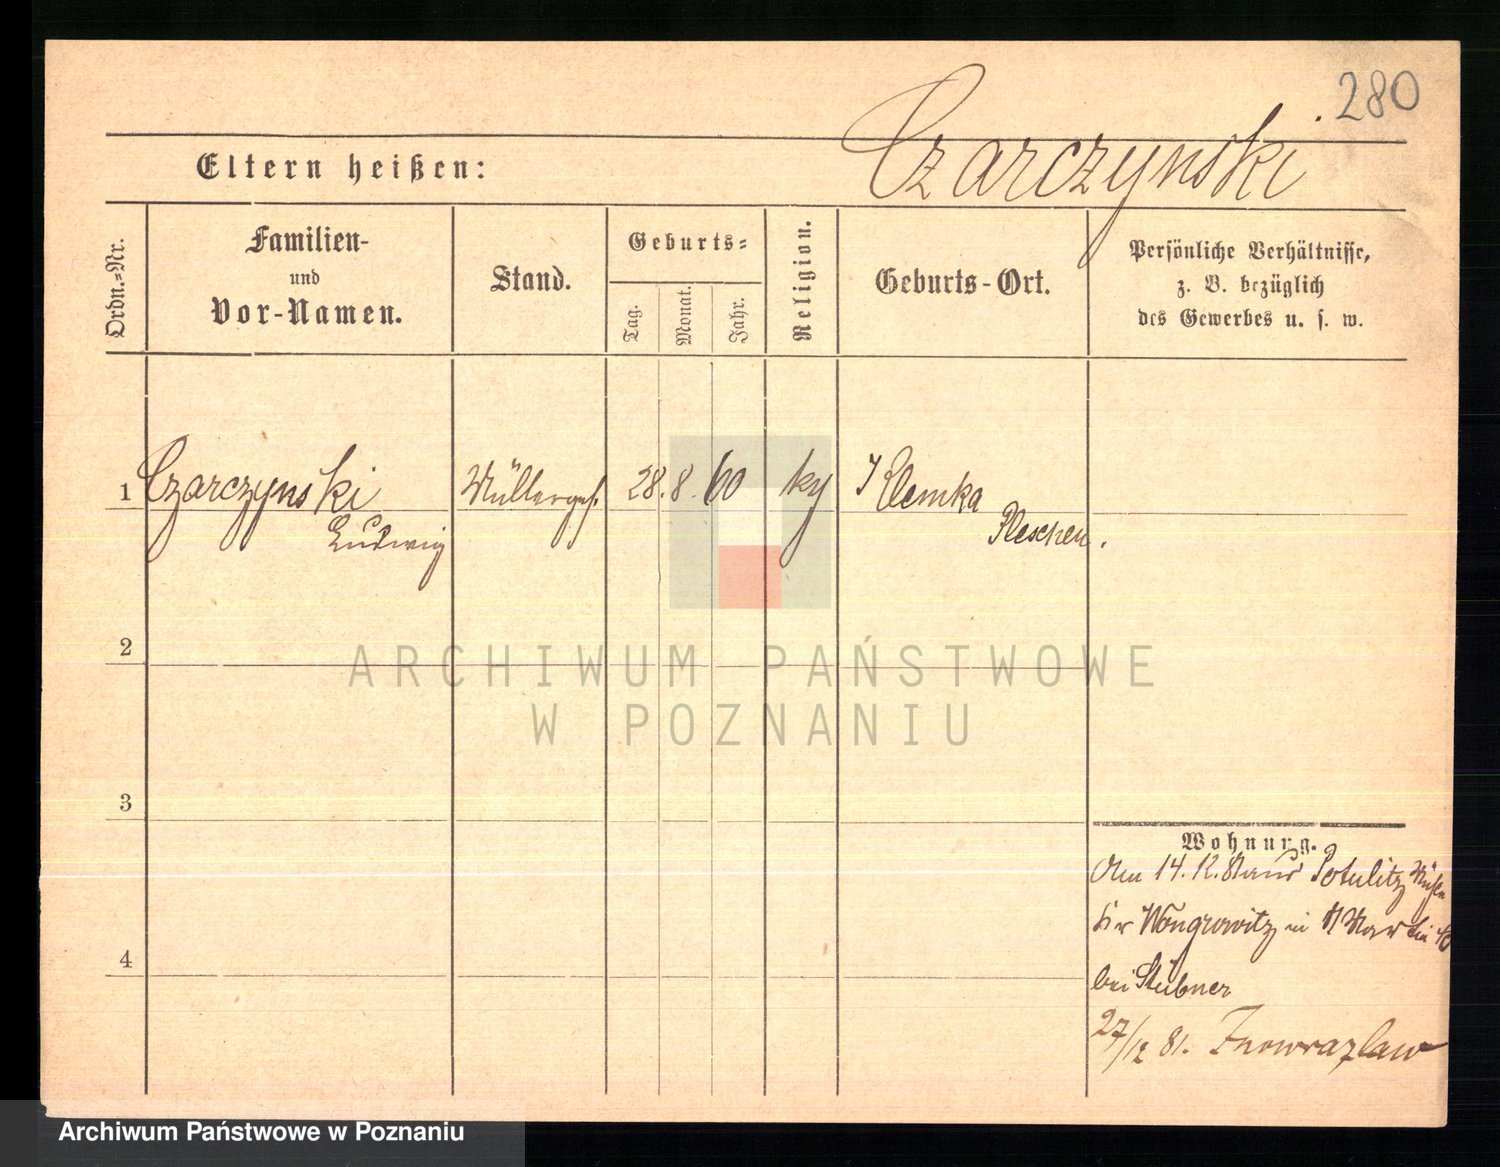 280
Czarczynski
Eltern heißen:
Ordn.-Nr.
Familien-
und
Vor-Namen.
Stand.
Geburts-
Tag.
Monat.
Jahr.
Religion.
Geburts-Ort.
Persönliche Verhältnisse,
z. B. bezüglich
des Gewerbes u. s. w.
1 Czarczynski Müllerges. 28. 8. 60 Klemka
Ludwig Pleschen.
2
ARCHIWUM PAŃSTWOWE
W POZNANIU
3
Wohnung.
Am 14. 12. Potulitz
Kr Wongrowitz in
bei Stübner
4
27/12 81. Inowrazlaw
Archiwum Państwowe w Poznaniu